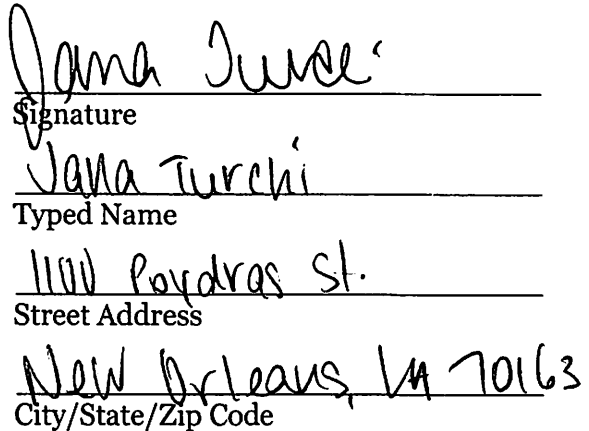 Jana Turchi
Signature
Jana Turchi
Typed Name
1100 Poydras St.
Street Address
New Orleans, LA 70163
City/State/Zip Code